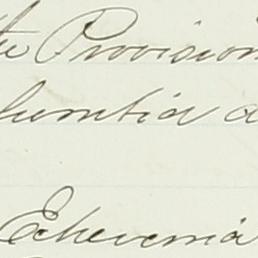 te Provision
lumbia a
Echeverria